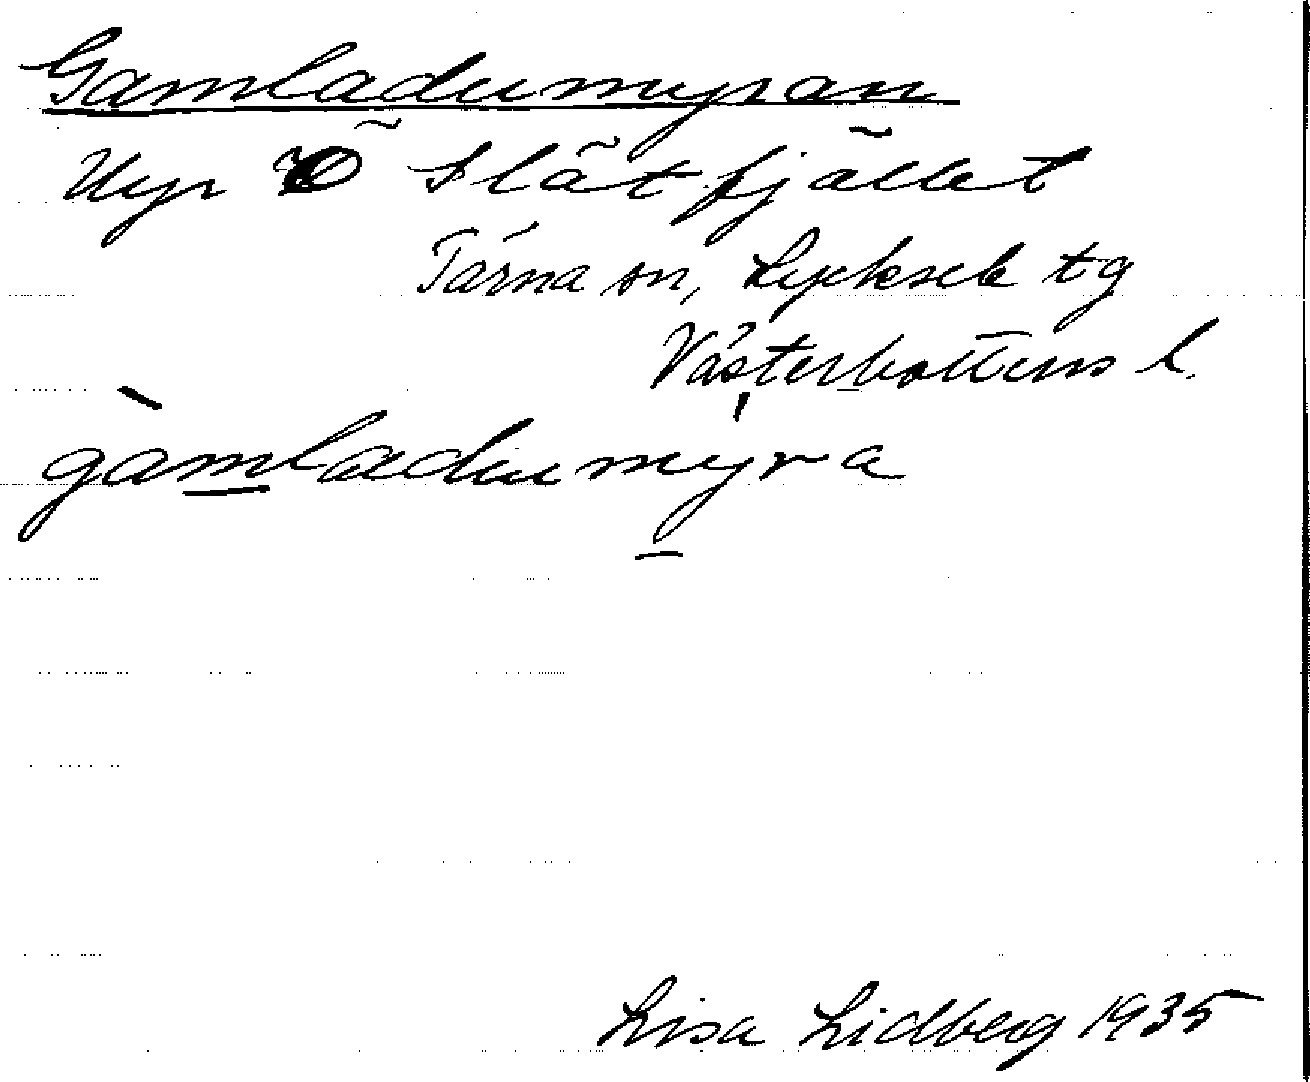 Gamladumyran
Myr Ö Slätfjället
Tärna sn, Lycksele tg
Västerbottens l.
gàmladumyra
Lisa Lidberg 1935